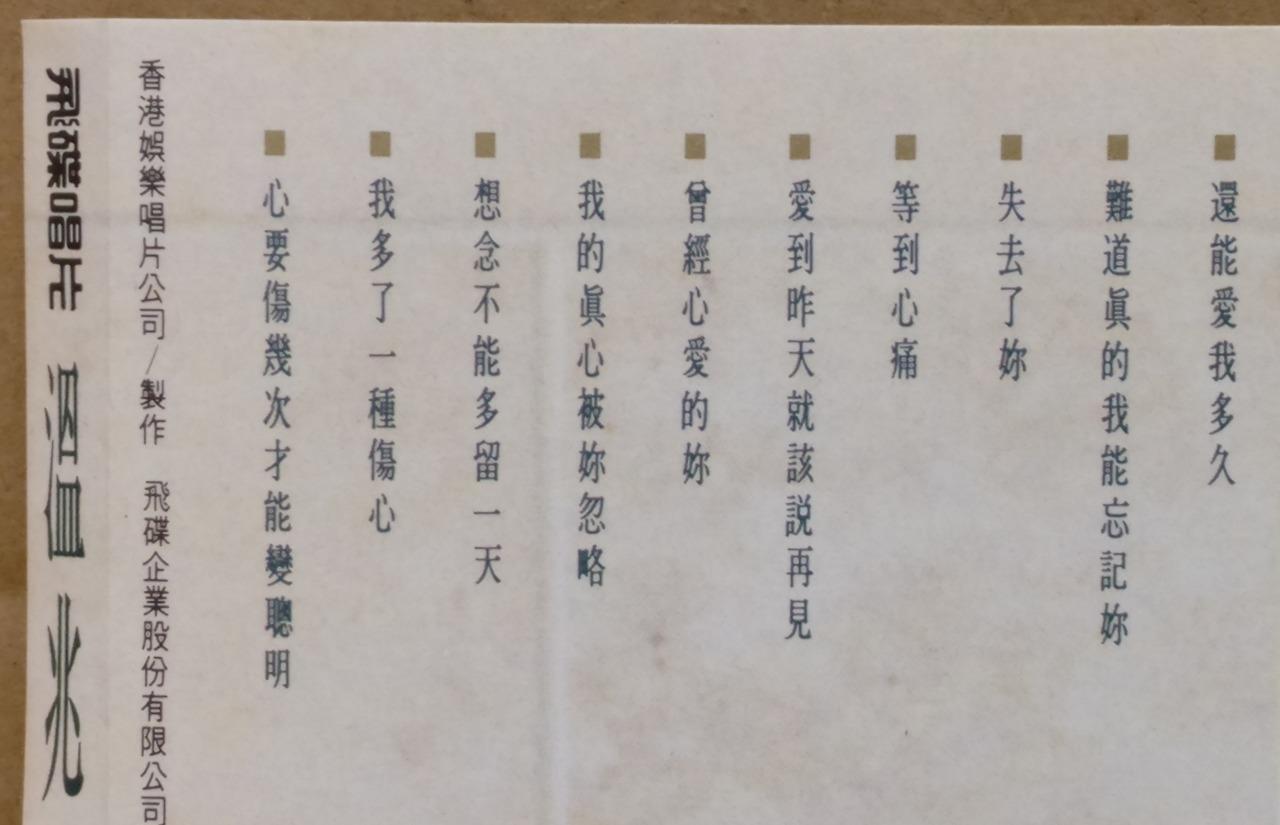 還能愛我多久
難道眞的我能忘記妳
失去了妳
等到心痛
愛到昨天就該説再見
曾經心愛的妳
我的眞心被妳忽略
想念不能多留一天
我多了一種傷心
心要傷幾次才能變聰明
香港娛樂唱片公司/製作 飛碟企業股份有限公司
飛碟唱片 溫兆